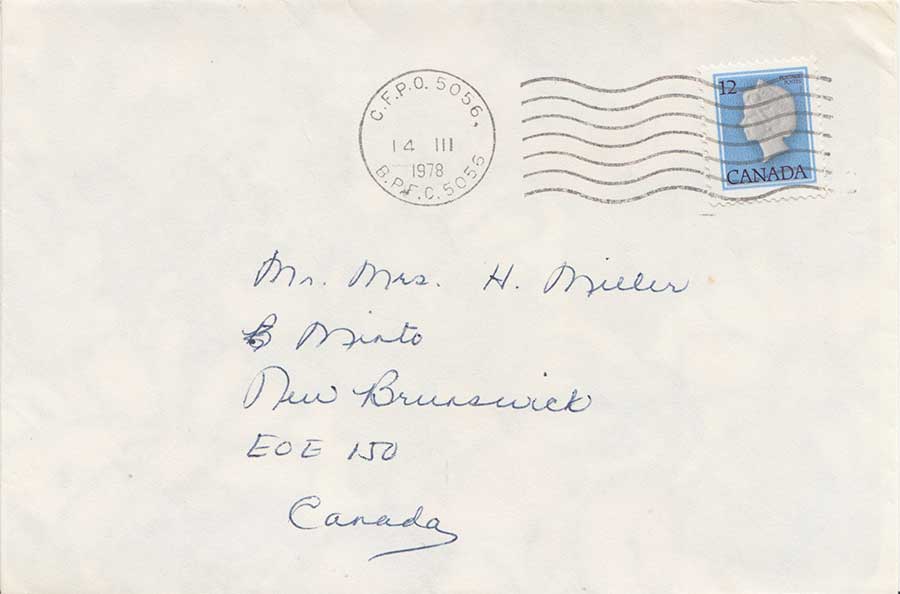 C.F.P.O. 5056,
14 III
1978
B.P.F.C. 5056
12
POSTAGE
POSTES
CANADA
Mr. Mrs. H. Miller
B Minto
New Brunswick
EOE 150
Canada